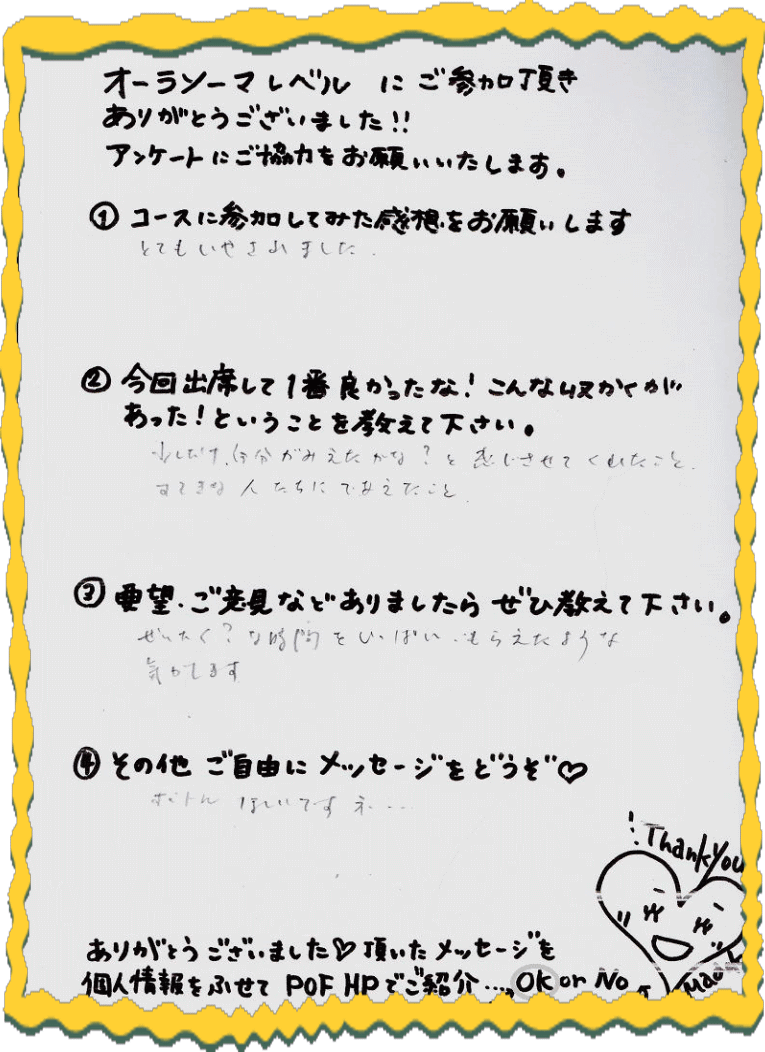 オーラソーマ レベル に ご参加頂き
ありがとうございました!!
アンケートにご協力をお願いいたします。
① コースに参加してみた感想をお願いします
とてもいやされました.
② 今回出席して1番良かったな! こんな収かくが
あった!ということを教えて下さい。
少しだけ、自分がみえたかな?と感じさせてくれたこと.
すてきな人たちにであえたこと.
③ 要望・ご意見などありましたら ぜひ教えて下さい。
ぜいたく?な時間をいっぱい、もらえたような
気がします
④ その他 ご自由に メッセージをどうぞ♡
ボトル ほしいですネ...
Thank you
ありがとうございました♡ 頂いた メッセージを
個人情報をふせて POF HPでご紹介...。OK or No